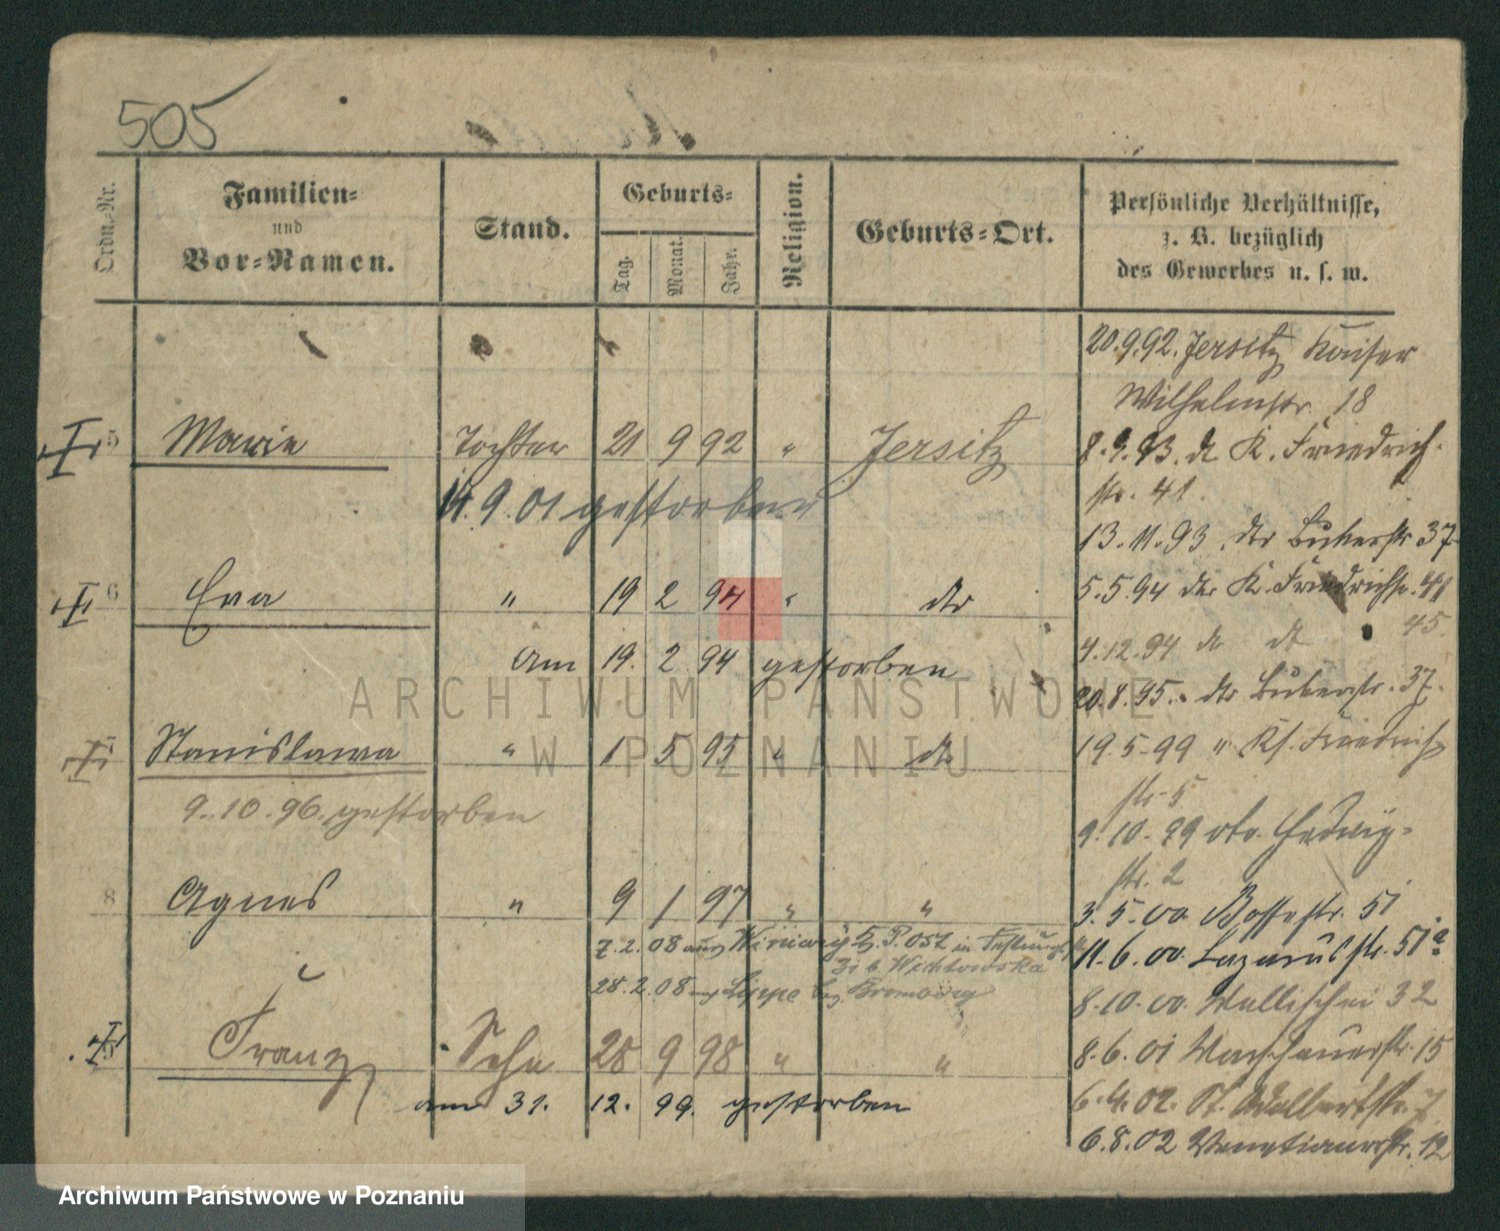 505
Ordn.-Nr.
Familien-
und
Vor-Namen.
Stand.
Geburts-
Tag.
Monat.
Jahr.
Religion.
Geburts-Ort.
Persönliche Verhältnisse,
z. B. bezüglich
des Gewerbes u. s. w.
20.9.92. Jersitz Kaiser
Wilhelmstr. 18
5 Marie Tochter 21 9 92 " Jersitz
8.9.93. K. Friedrich-
str. 41.
14.9.01 gestorben
13.11.93. dto 37
6 Eva " 19 2 94 " dto
5.5.94 dto K. Friedrichstr. 41
Am 19. 2 94 gestorben
4.12.94 45.
20.8.95. dto 37.
7 Stanislawa " 1 5 95 " dto
19.5.99 " Friedrich
str. 5
9.10.96. gestorben
9.10.99 dto. Hedwig-
str. 2
8 Agnes " 9 1 97 " "
3.5.00. str. 51
7.2.08 aus P. Ost in
11.6.00. Lazarusstr. 51a
28.2.08 Bromberg
8.10.00. Wallischei 32
9 Franz Sohn 28 9 98 " "
8.6.01 Warschauerstr. 15
am 31. 12. 99. gestorben
6.4.02. St. Adalbertstr. 7
6.8.02 Venetianerstr. 12
ARCHIWUM PAŃSTWOWE
W POZNANIU
Archiwum Państwowe w Poznaniu